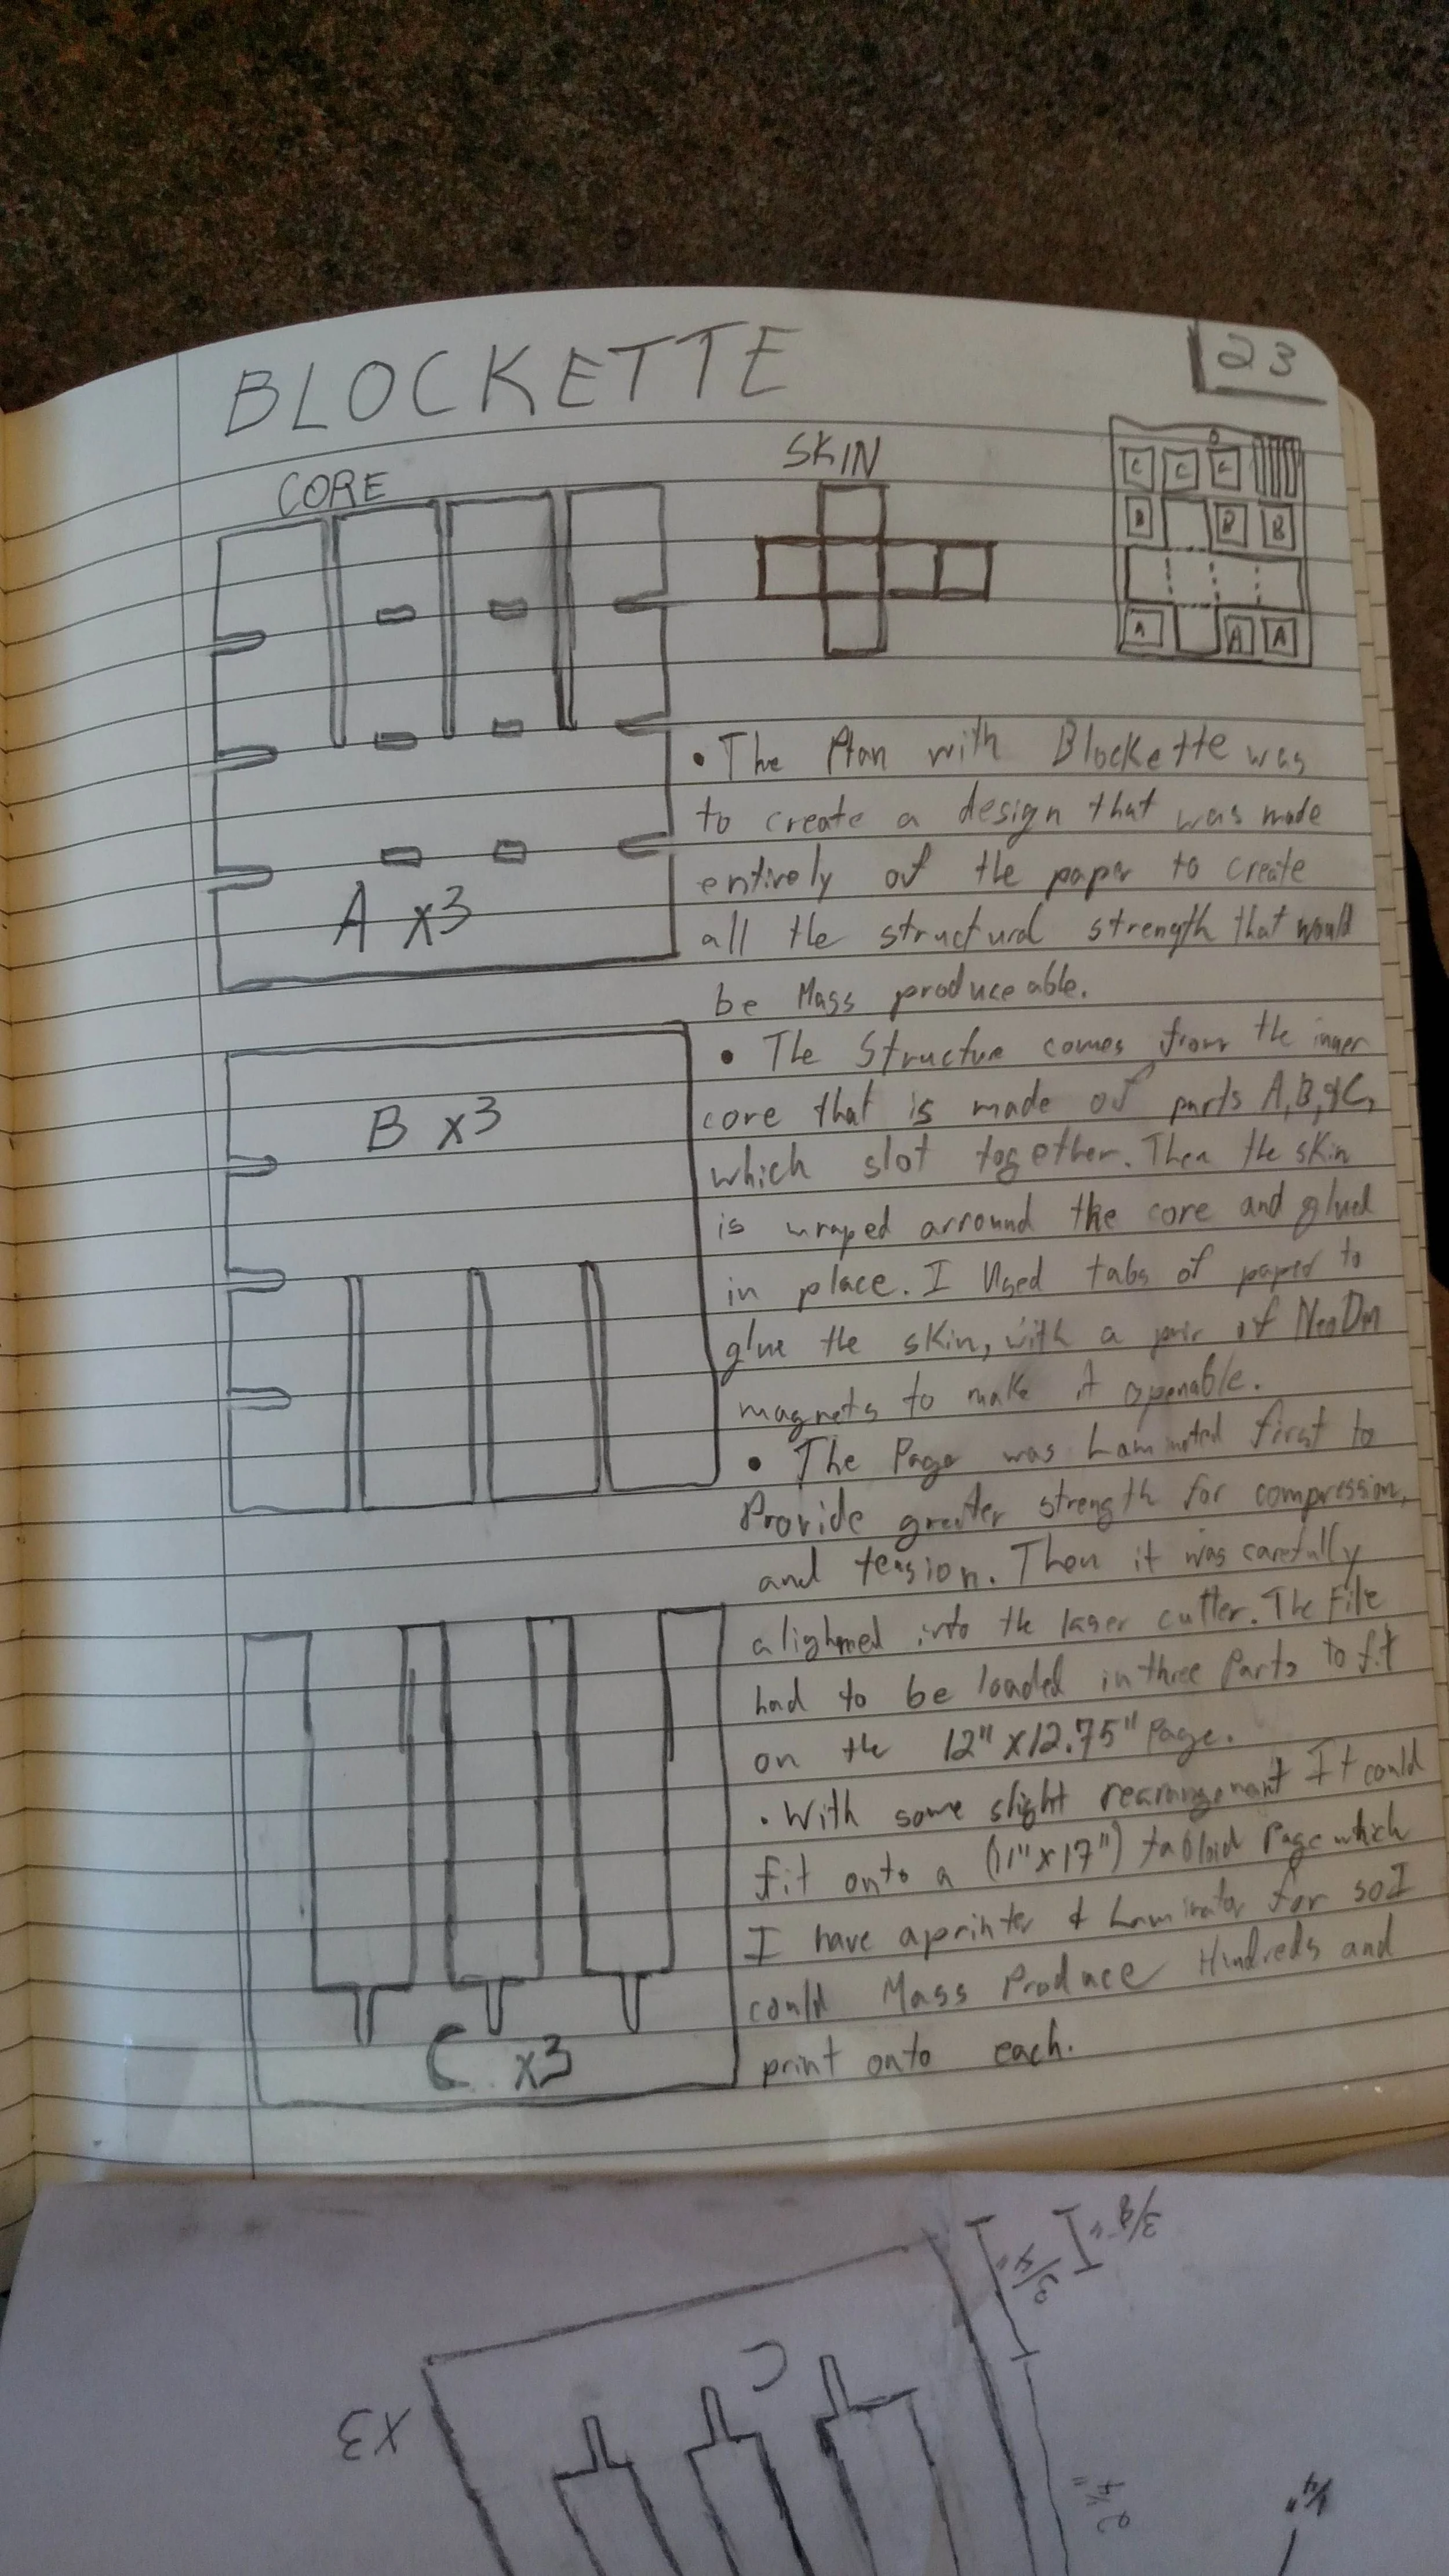 BLOCKETTE
23
CORE
SKIN
C C C
B B B
A A A
A x3
• The Plan with Blockette was
to create a design that was made
entirely of the paper to create
all the structural strength that would
be Mass produceable.
B x3
• The Structure comes from the inner
core that is made of parts A, B, & C,
which slot together. Then the skin
is wraped arround the core and glued
in place. I Used tabs of paper to
glue the skin, with a pair of NeoDm
magnets to make it openable.
• The Page was Laminated first to
Provide greater strength for compression,
and tension. Then it was carefully
alighned into the laser cutter. The File
had to be loaded in three Parts to fit
on the 12" x 12.75" Page.
• With some slight rearrangement It could
fit onto a (11" x 17") tabloid Page which
I have a printer & Laminator for so I
could Mass Produce Hundreds and
print onto each.
C x3
3/8"
3/4"
C
x3
2 1/4"
1/4"